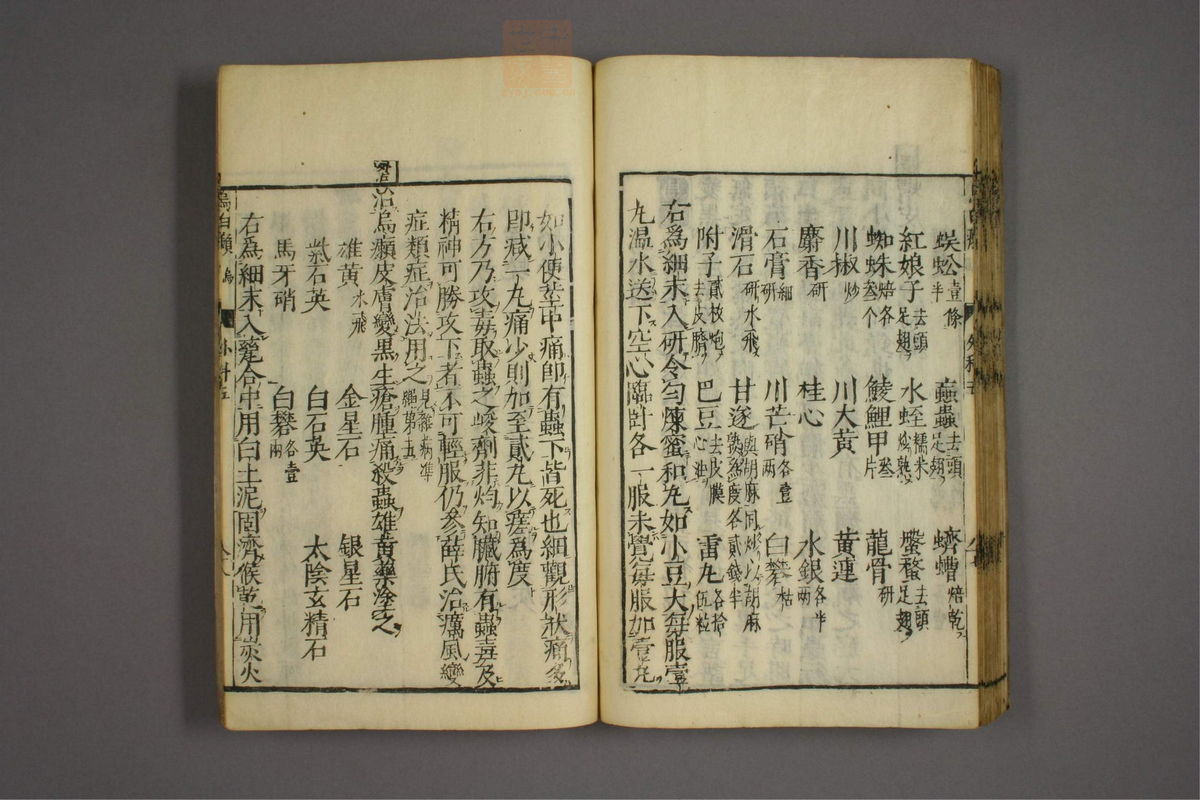 蜈蚣壹條 蝱蟲去頭足翅 蠐螬焙乾
紅娘子去頭足翅 水蛭糯米炒熟 螌蝥去頭足翅
蜘蛛焙各叁个 鯪鯉甲叁片 龍骨研
川椒炒 川大黃 黃連
麝香研 桂心 水銀各半兩
石膏細研 川芒硝各壹兩 白礬枯
滑石研水飛 甘遂與胡麻同炒以胡麻熟爲度各貳錢半
附子貳枚炮去皮臍 巴豆去皮膜心油 雷丸各拾伍粒
右爲細末入研令勻煉蜜和丸如小豆大每服壹
丸温水送下空心臨卧各一服未覺每服加壹丸
如小便莖中痛卽有蟲下皆死也細觀形狀痛多
卽减一丸痛少則加至貳丸以瘥爲度
右方乃攻毒取蟲之峻劑非灼知臟腑有蟲毒及
精神可勝攻下者不可輕服仍參薛氏治癘風變
症類症治法用之見雜病準繩第五
治烏癩皮膚變黑生瘡腫痛殺蟲雄黃藥塗之
雄黃水飛 金星石 銀星石
紫石英 白石英 太陰玄精石
馬牙硝 白礬各壹兩
右爲細末入
合中用白土泥固濟候乾用炭火
烏白癩